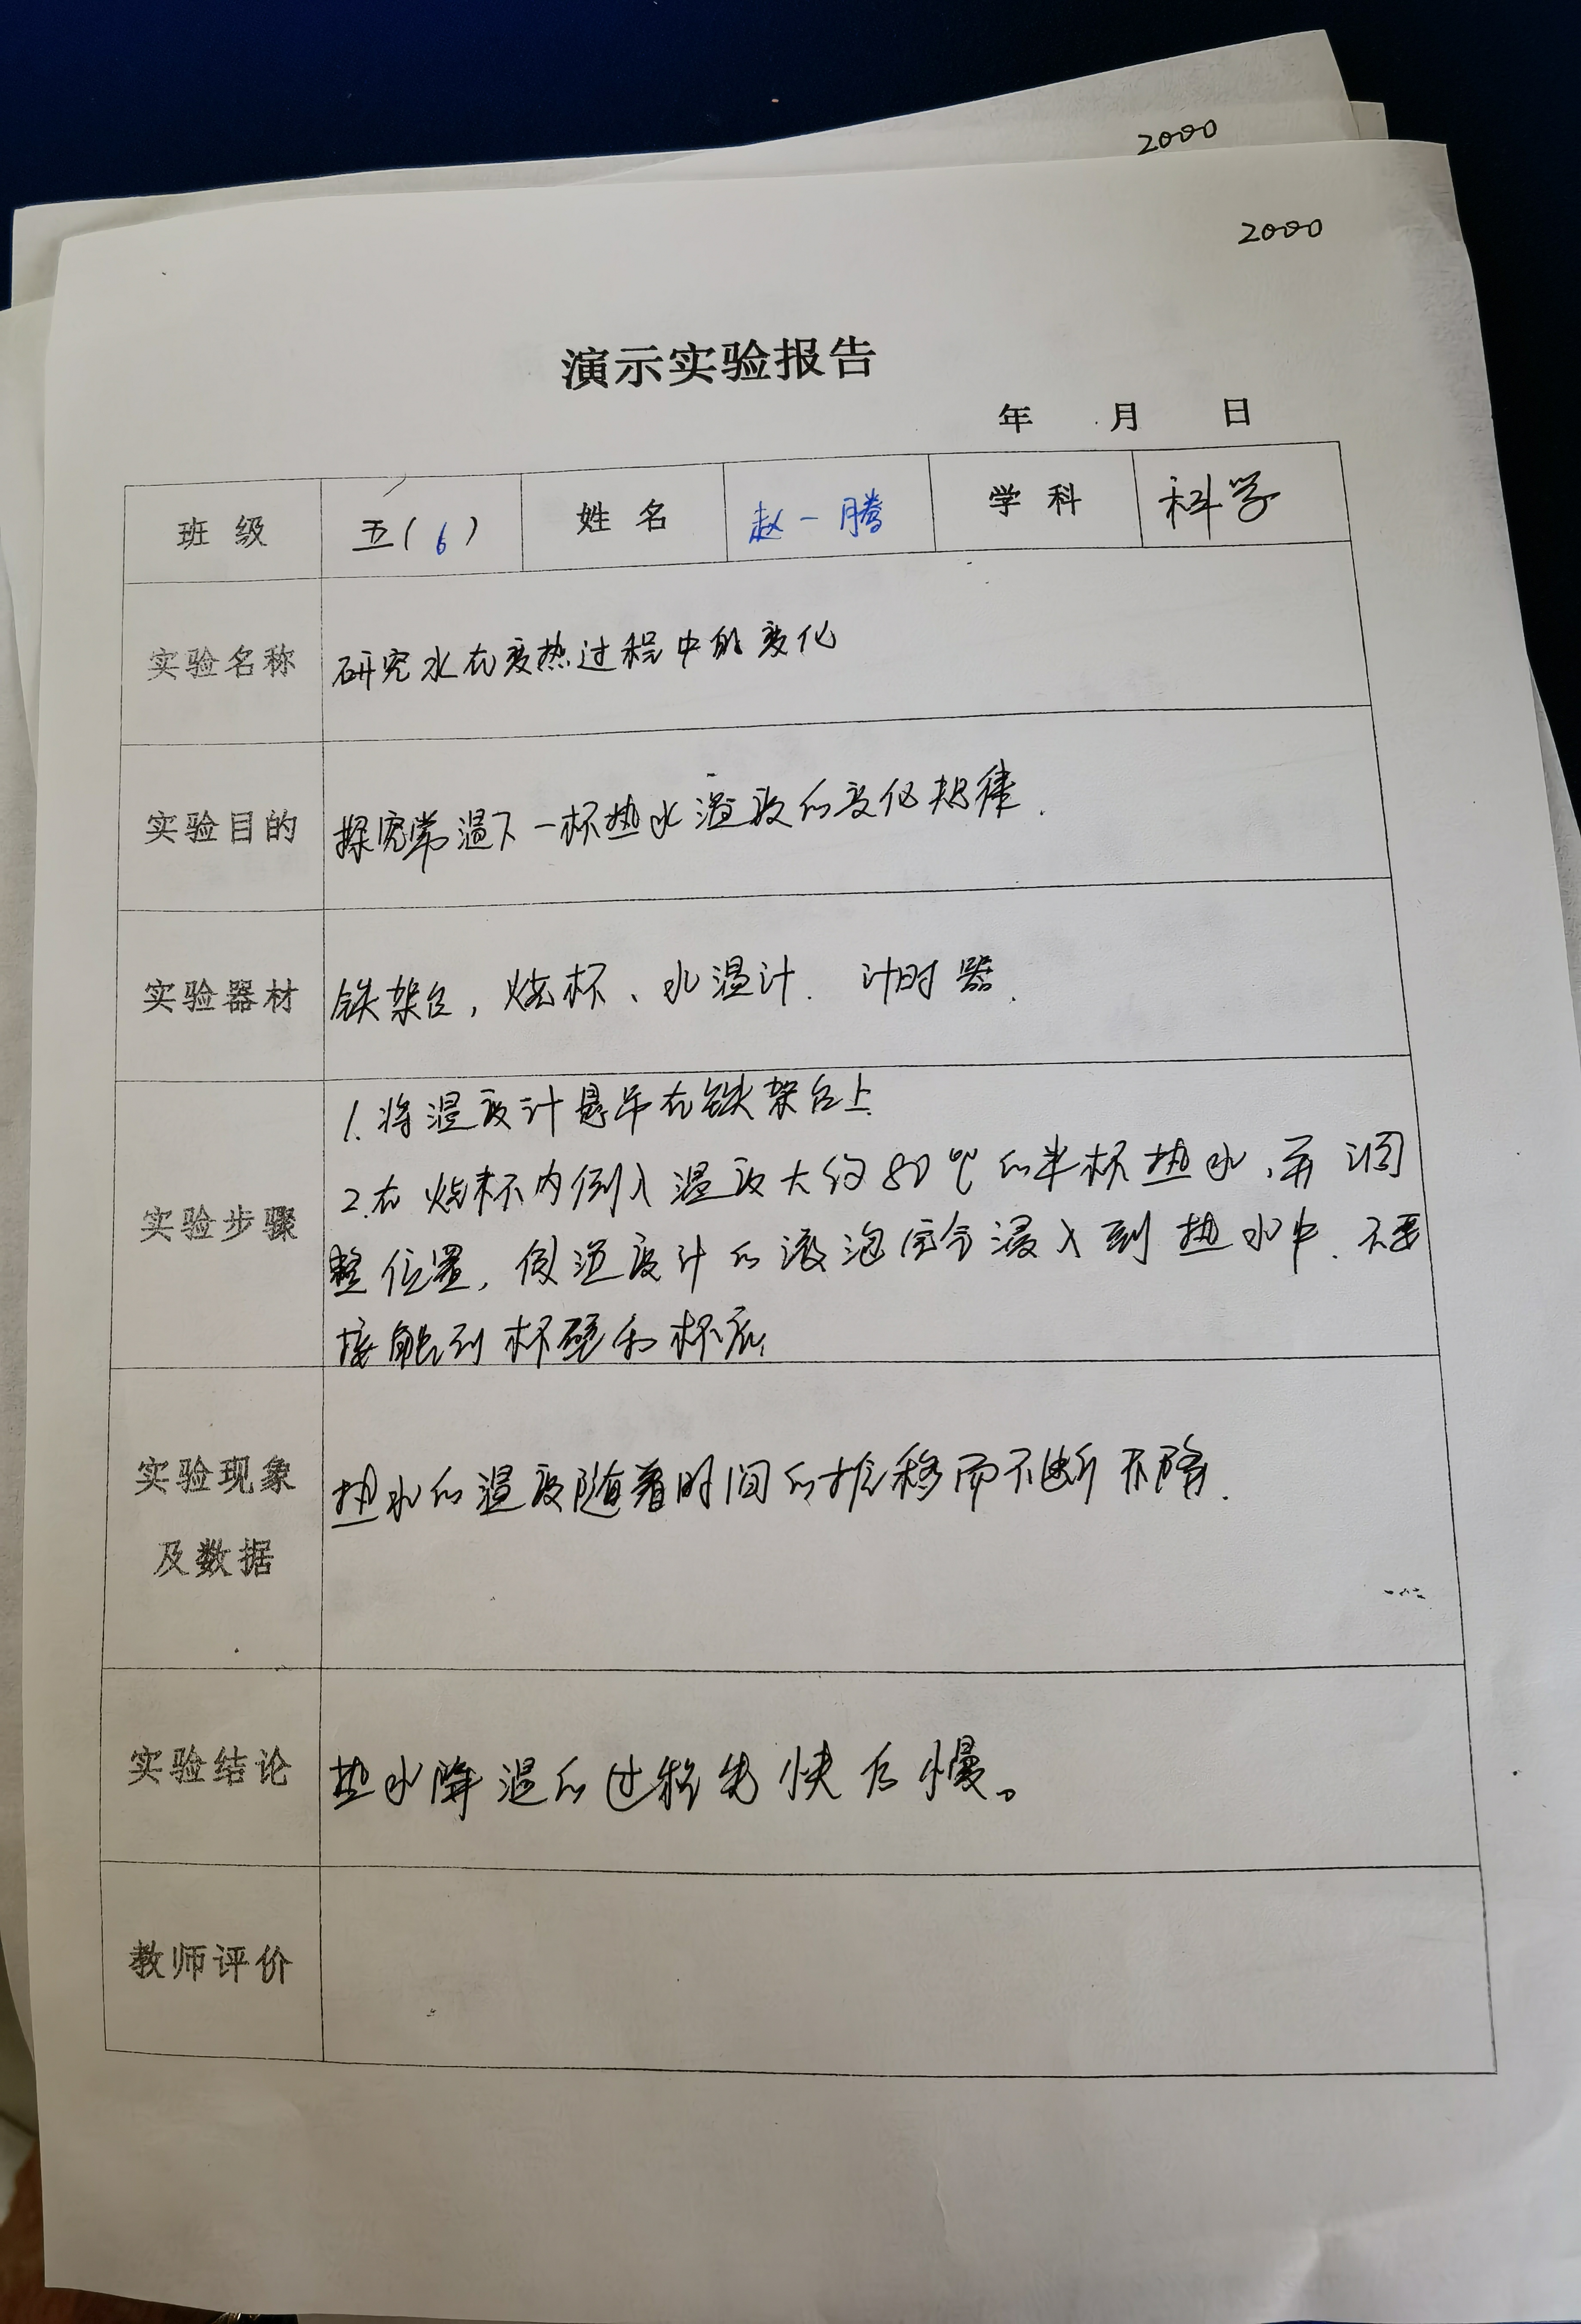 2000
2000
演示实验报告
年 月 日
班级 五(6) 姓名 赵一腾 学科 科学
实验名称 研究水在变热过程中的变化
实验目的 探究常温下一杯热水温度的变化规律.
实验器材 铁架台,烧杯、水温计.计时器.
实验步骤
1.将温度计悬吊在铁架台上
2.在烧杯内倒入温度大约80℃的半杯热水,并调
整位置,使温度计的液泡完全浸入到热水中.不要
接触到杯壁和杯底
实验现象
及数据
热水的温度随着时间的推移而不断下降.
实验结论 热水降温的过程先快后慢。
教师评价